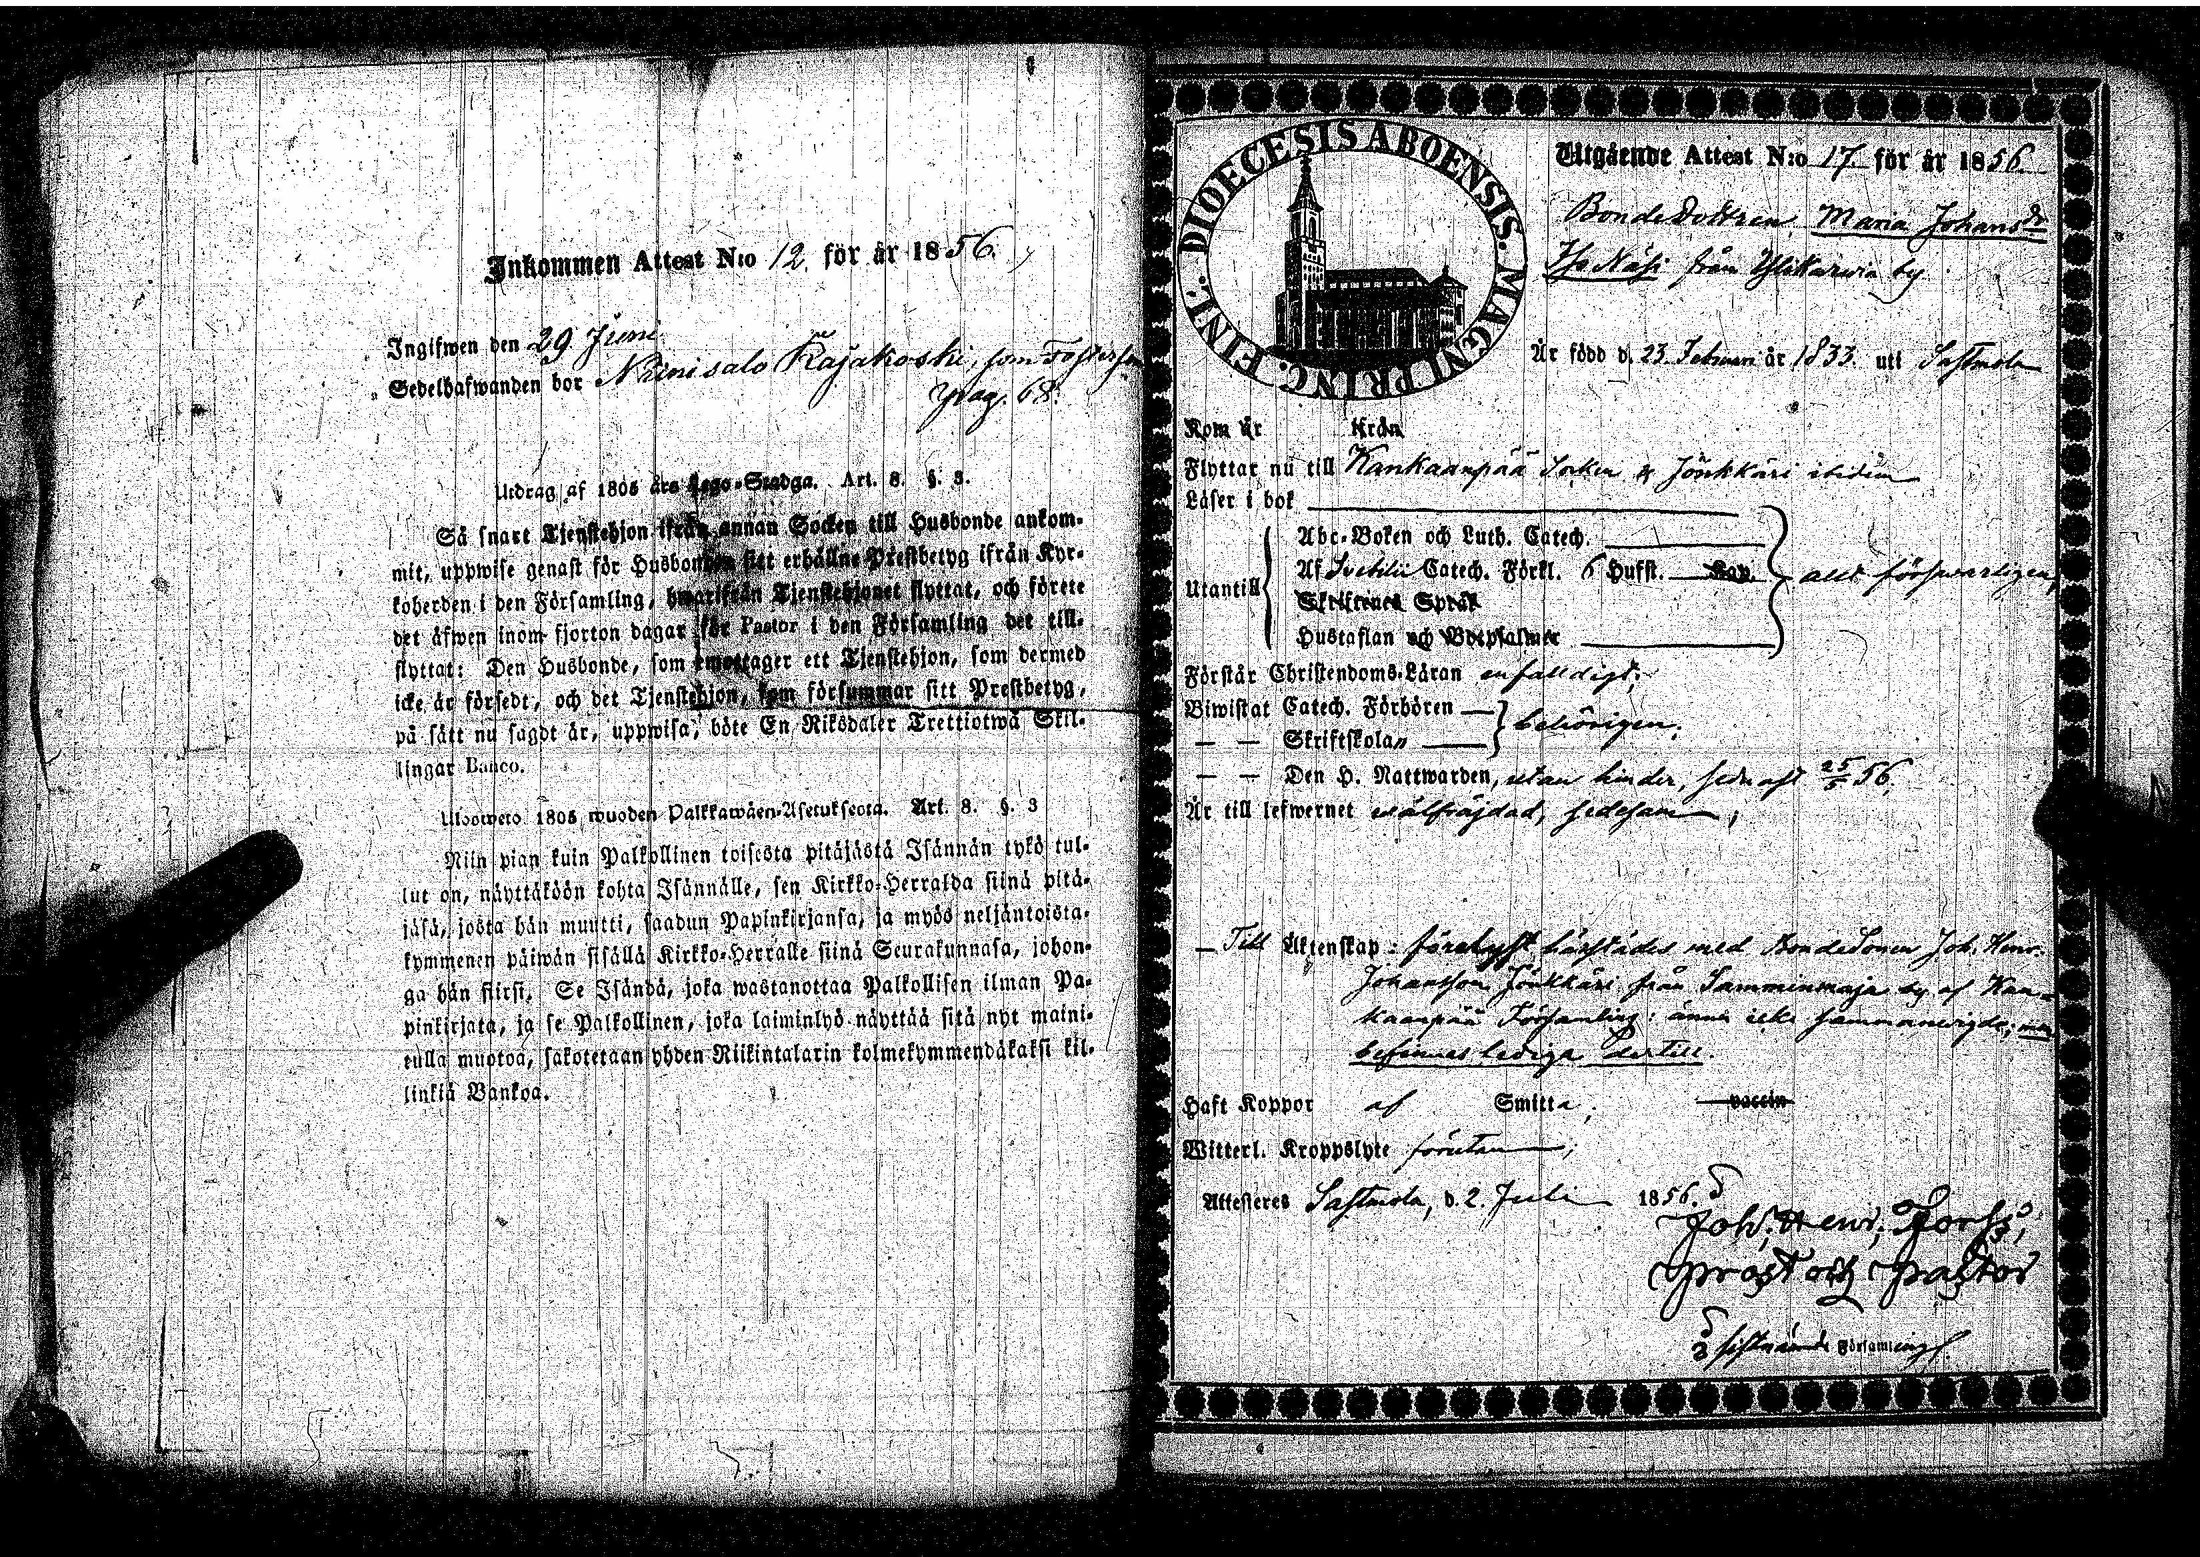 Inkommen Attest N:o 12. för år 1856.
Ingifwen den 29 Juni
Sedelhafwanden bor Niinisalo Kajakoski, som
pag. 68.
Utdrag af 1805 års Lego-Stadga. Art. 8. §. 3.
Så snart Tjenstehjon ifrån annan Socken till Husbonde ankom-
mit, uppwise genast för Husbonden sitt erhållne Prestbetyg ifrån Kyr-
koherden i den Församling, hwarifrån Tjenstehjonet flyttat, och förete
det äfwen inom fjorton dagar för Pastor i den Församling det till-
flyttat: Den Husbonde, som emottager ett Tjenstehjon, som dermed
icke är försedt, och det Tjenstehjon, som försummar sitt Prestbetyg,
på sätt nu sagdt är, uppwisa, böte En Riksdaler Trettiotwå Skil-
lingar Banco.
Ulosweto 1805 wuoden Palkkawäen-Asetuksesta. Art. 8. §. 3
Niin pian kuin Palkollinen toisesta pitäjästä Isännän tykö tul-
lut on, näyttäköön kohta Isännälle, sen Kirkko-Herralda siinä pitä-
jäsä, josta hän muutti, saadun Papinkirjansa, ja myös neljäntoista-
kymmenen päiwän sisällä Kirkko-Herralle siinä Seurakunnasa, johon-
ga hän siirsi. Se Isändä, joka wastanottaa Palkollisen ilman Pa-
pinkirjata, ja se Palkollinen, joka laiminlyö näyttää sitä nyt maini-
tulla muotoa, sakotetaan yhden Riikintalarin kolmekymmendäkaksi kil-
linkiä Bankoa.
DIOECESIS ABOENSIS. MAGNI PRINC. FINL.
Utgående Attest N:o 17. för år 1856.
Bondedottren Maria Johansdr
Näsi från Ylikarwia by.
Är född d. 23. Februari år 1833. uti Sastmola
Kom år från
Flyttar nu till Kankaanpää Socken & Jönkkäri ibidem
Läser i bok
Utantill
Abc-Boken och Luth. Catech.
Af Svebilii Catech. Förkl. 6 Hufst. Kap. allt försvarligen,
Skriftenes Språk
Hustaflan och Botpsalmer
Förstår Christendoms-Läran enfaldigt;
Biwistat Catech. Förhören
— — Skriftskolan behörigen,
— — Den H. Nattwarden, utan hinder, sednast 25/5 56.
Är till lefwernet wälfräjdad, sedesam,
— Till Äktenskap: förelyst härstädes med Bondesonen Joh. Henr.
Johansson Jönkkäri från Samminmaja by af Kan-
kaanpää Församling: ännu icke sammanwigde;
befinnes lediga dertill.
Haft Koppor af Smitta; vaccin
Witterl. Kroppslyte förutan,
Attesteres Sastmola, d. 2. Juli 1856.
Joh. Henr. Forss,
prost och pastor
i sistnämnde Församling.